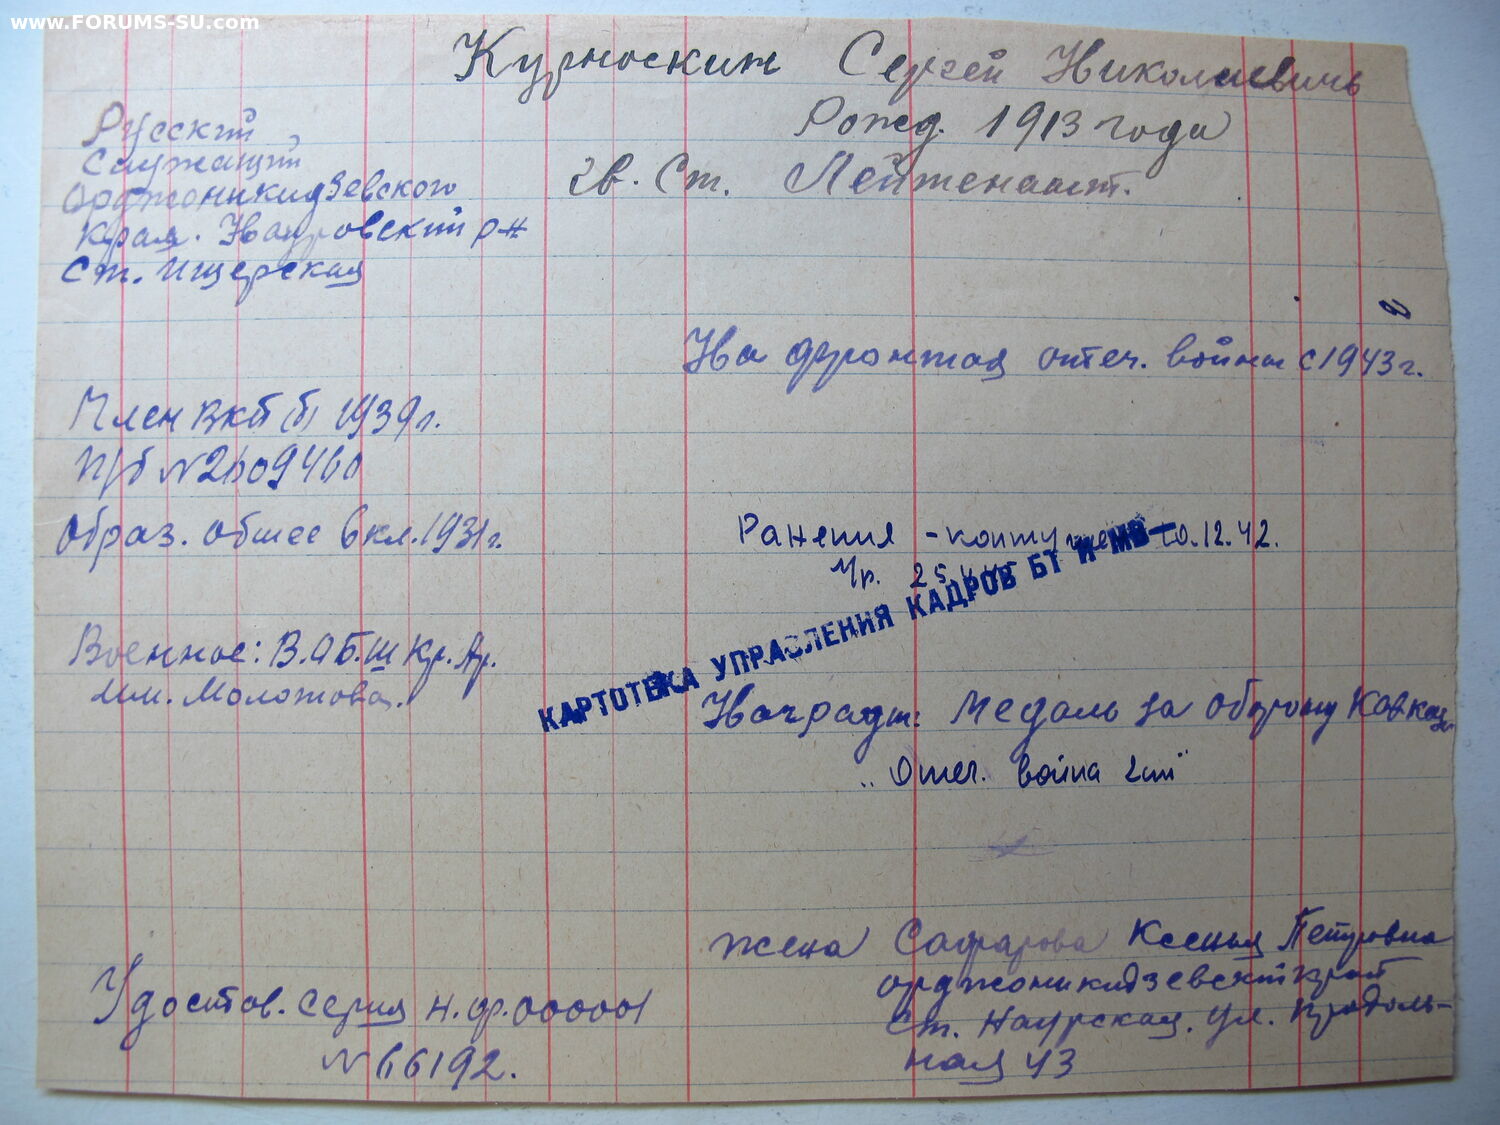 www.FORUMS-SU.com
Курноскин Сергей Николаевичь
Рожд. 1913 года
гв. Ст. Лейтенант.
Русский
Служащий
Орджоникидзевского
Края. Науровский р-н
Ст. Ищерская
На фронтая отеч. войны с 1943 г.
Член ВКП(б) 1939 г.
П/б N 2609460
Образ. общее 6 кл. 1931 г.
Ранения - контужен 20.12.42.
КАРТОТЕКА УПРАВЛЕНИЯ КАДРОВ БТ И МВ
Военное: В.А Б.Ш Кр. Ар.
им. Молотова.
Награды: Медаль за оборону Кавказ
„Отеч. война 2 ст"
жена Сафарова Ксения Петровна
орджоникидзевский край
ст. Наурская. ул. Продоль-
ная 43
Удостов. серия н.ф. 000001
N 66192.